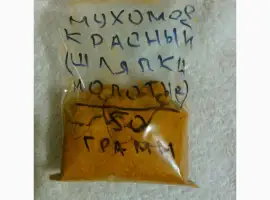 МУХОМОР
КРАСНЫЙ
(ШЛЯПКИ
МОЛОТЫЕ)
50
ГРАММ